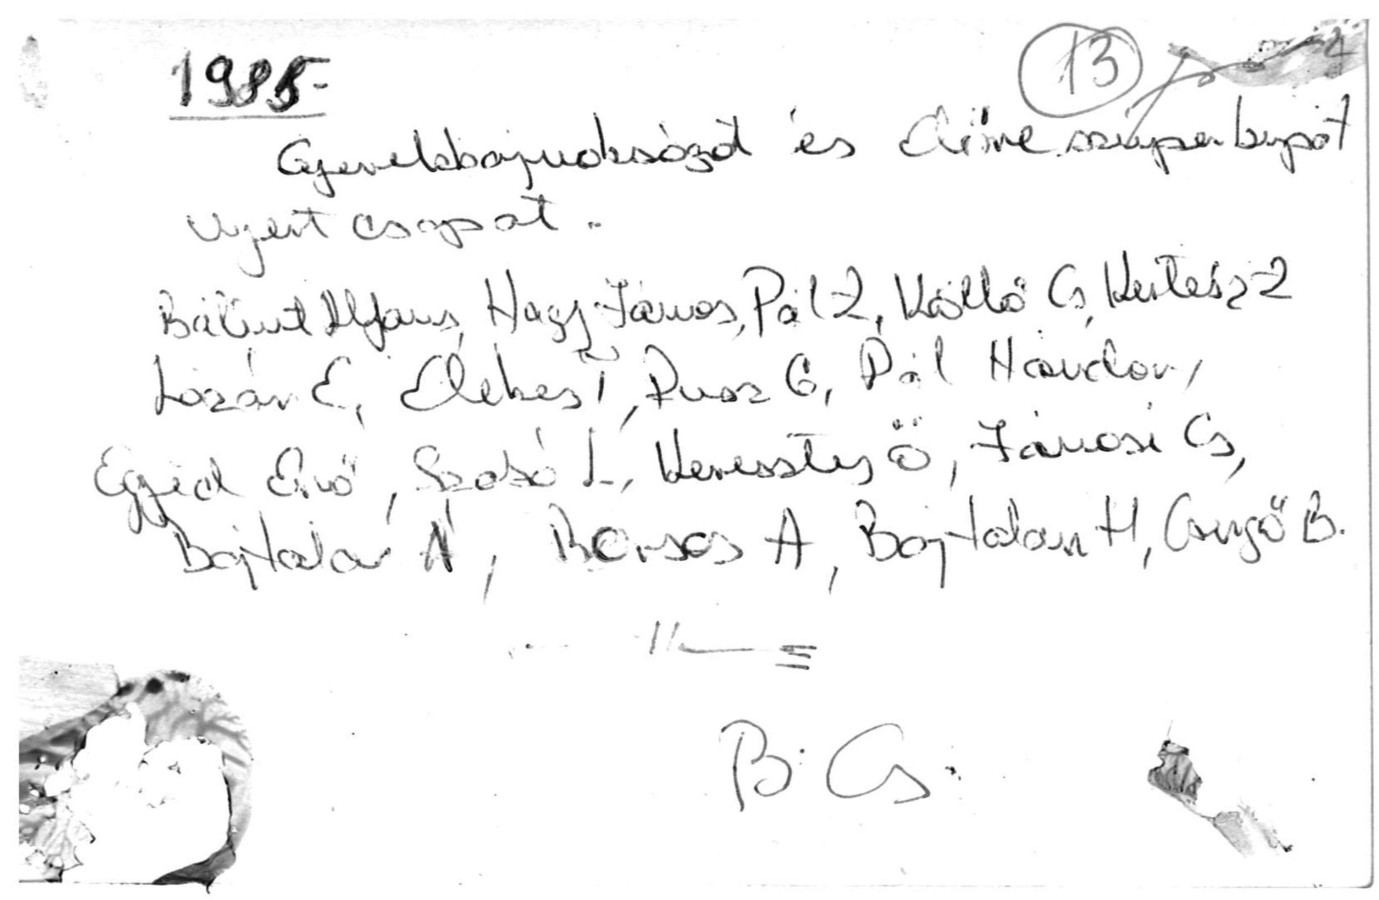 1985
13
Gyerekbajnokságot és Előre szuperkupát
nyert csapat.
Bálint Alfonz, Nagy János, Pál Z, Kölló Cs, Kertész Z
Lázár E, Elekes T, Rusz G, Pál Nándor,
Egyed Ernő, Szabó L, Keresztes Ö, Jánosi Cs,
Bajtalan N, Borsos A, Bajtalan H, Csergő B.
B. Cs.